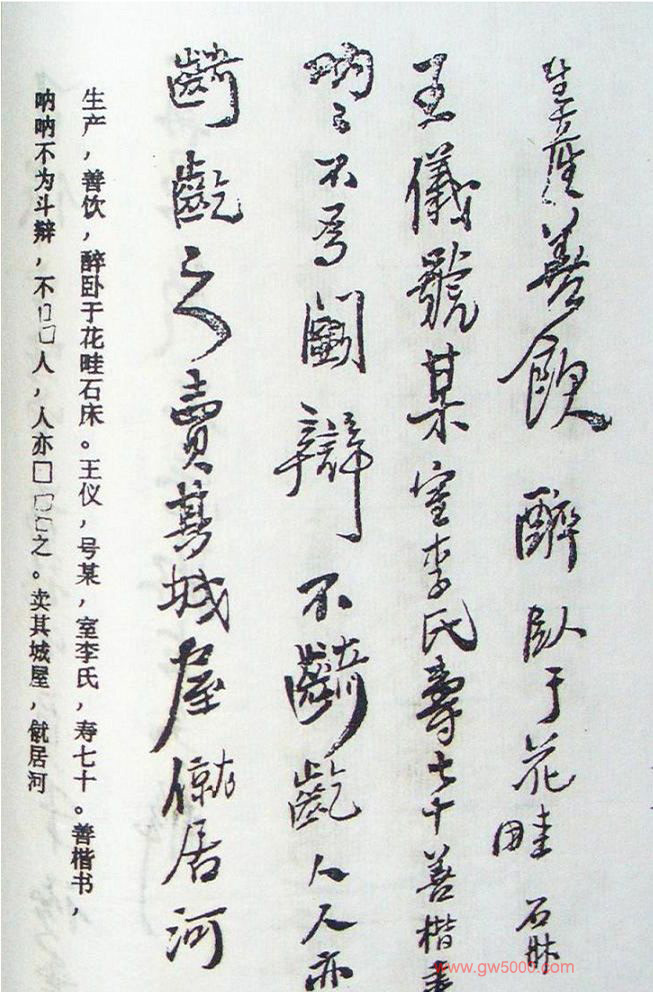 生產善飲醉臥于花畦石牀
王儀號某室李氏壽七十善楷書
吶々不爲鬭辯不齮齕人人亦
齮齕之賣其城屋僦居河
生产，善饮，醉卧于花畦石床。王仪，号某，室李氏，寿七十。善楷书，
呐呐不为斗辩，不□□人，人亦□□□之。卖其城屋，僦居河
www.gw5000.com